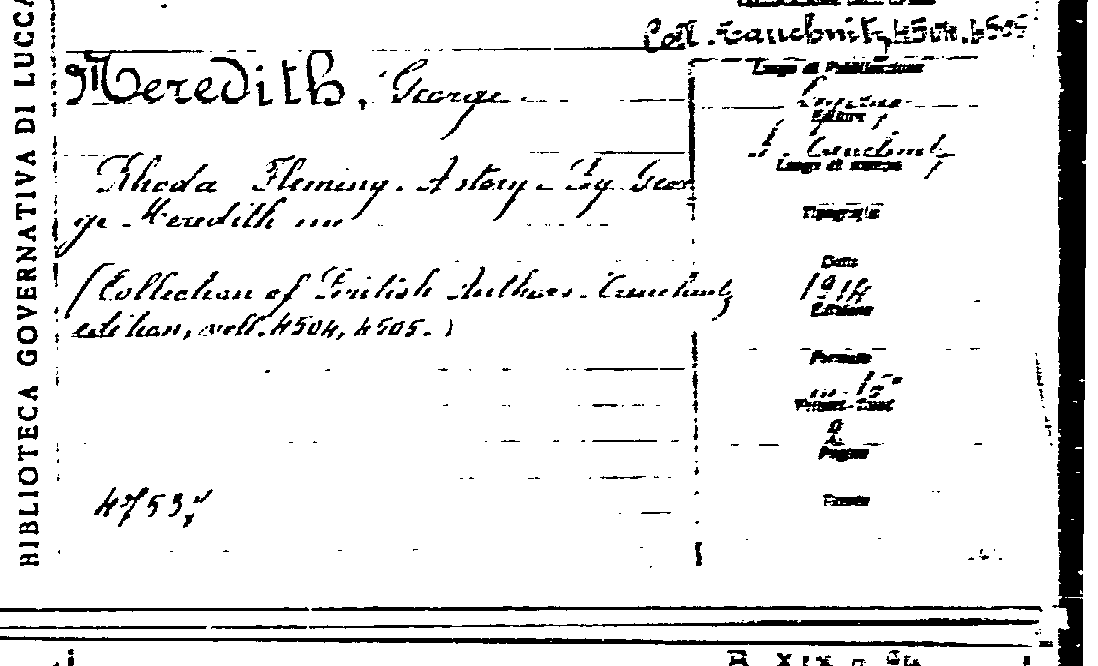 BIBLIOTECA GOVERNATIVA DI LUCCA
Coll. Tauchnitz, 4504.4505
Meredith, George
Rhoda Fleming. A story. By Geor
ge Meredith
(Collection of British Authors. Tauchnitz
edition, voll. 4504, 4505.)
4753
Luogo di Pubblicazione
Editore
B. Tauchnitz
Luogo di stampa
Tipografia
Data
1914
Edizione
Formato
in-16°
2
Pagine